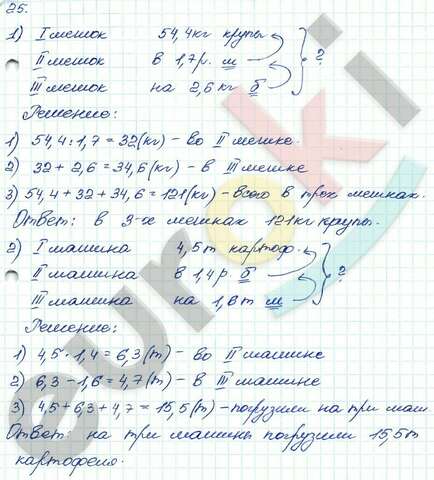 25.
1) I мешок 54,4кг крупы
II мешок в 1,7р. м ?
III мешок на 2,6кг б
Решение:
1) 54,4:1,7=32(кг)-во II мешке.
2) 32+2,6=34,6(кг)-в III мешке
3) 54,4+32+34,6=121(кг)-всего в трёх мешках.
Ответ: в 3-х мешках 121кг крупы.
2) I машина 4,5т картоф.
II машина в 1,4р. б ?
III машина на 1,6т м
Решение:
1) 4,5·1,4=6,3(т)-во II машине
2) 6,3-1,6=4,7(т)-в III машине
3) 4,5+6,3+4,7=15,5(т)-погрузили на три маш
Ответ: на три машины погрузили 15,5т
картофеля.
euroki